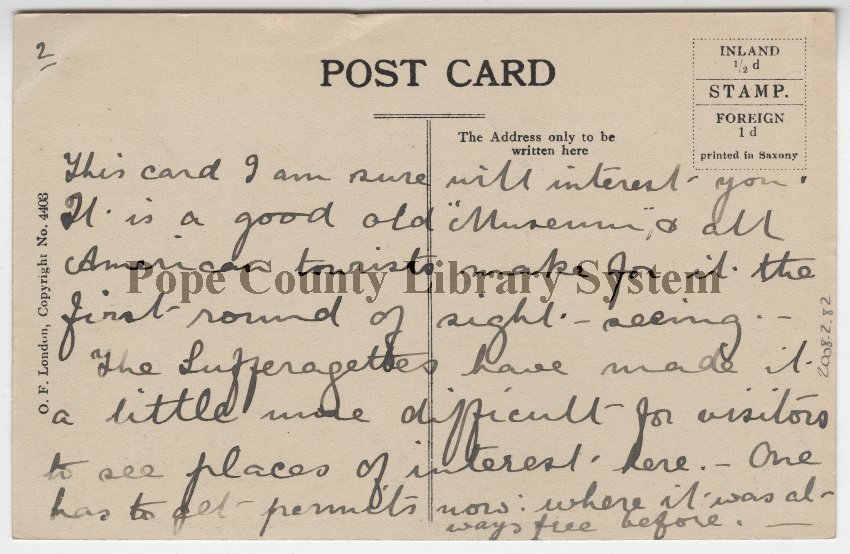 2
POST CARD
INLAND
1/2 d
STAMP.
FOREIGN
1 d
printed in Saxony
The Address only to be
written here
This card I am sure will interest you.
It is a good old "Museum", & all
American tourists make for it the
first round of sight-seeing.-
The Sufferagettes have made it
a little more difficult for visitors
to see places of interest here.- One
has to get permits now: where it was al-
ways free before. —
O. F. London, Copyright No. 4403
Pope County Library System
2008-2.82